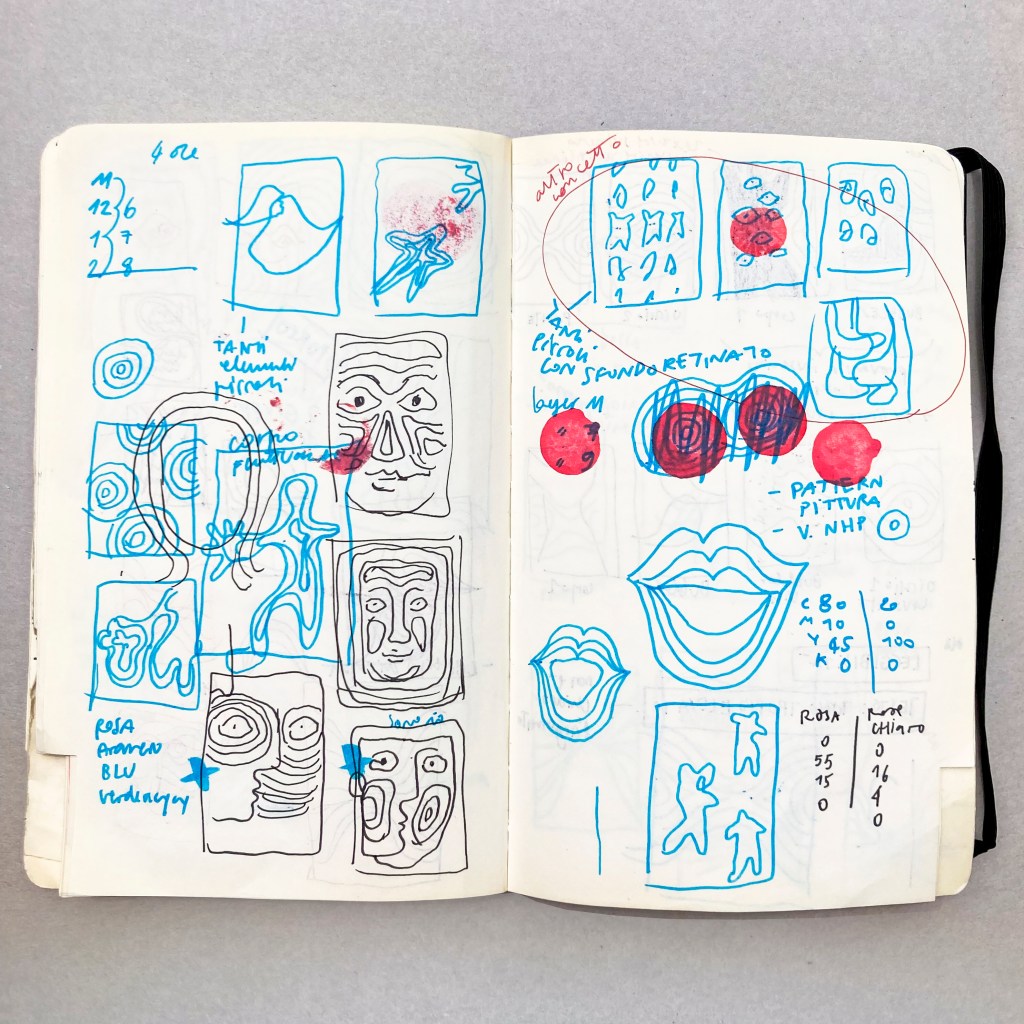 4 ore
11
12 6
1 7
2 8
TANTI
elementi
piccoli
corpo
ROSA
BLU
altro
concetto
TANTI
piccoli
CON SFUNDO RETINATO
layer M
- PATTERN
PITTURA
- V. NHP
C 80
M 10 0
Y 45 100
K 0 0
ROSA ROSA
CHIARO
0 0
55 16
15 4
0 0